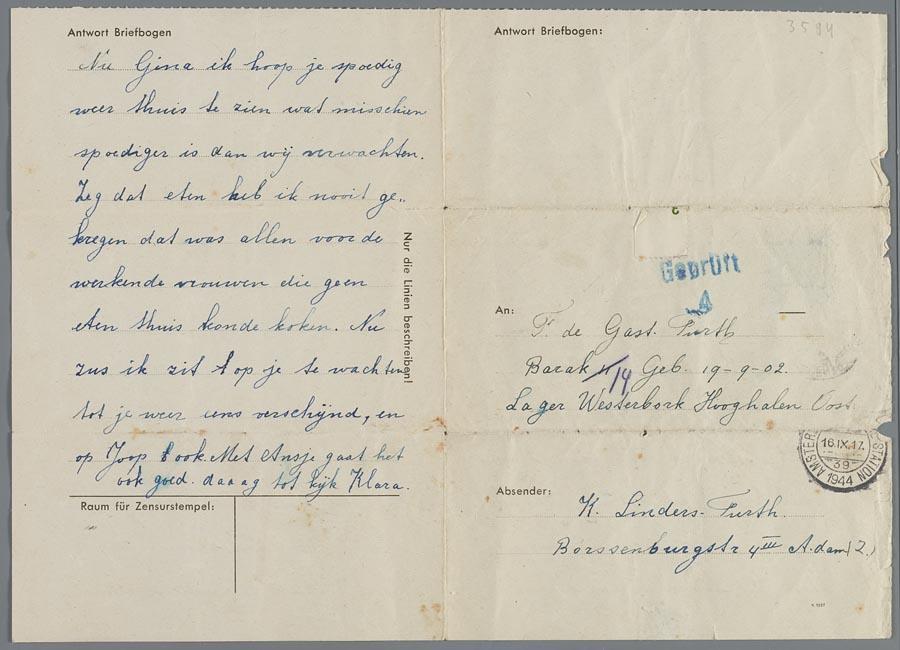 Antwort Briefbogen
Nu Gina ik hoop je spoedig
weer thuis te zien wat misschien
spoediger is dan wij verwachten.
Zeg dat eten heb ik nooit ge„
kregen dat was allen voor de
werkende vrouwen die geen
eten thuis konde koken. Nu
zus ik zit op je te wachten
tot je weer eens verschijnd, en
op Joop ook. Met Ansje gaat het
ook goed. daaag tot kijk Klara.
Nur die Linien beschreiben!
Raum für Zensurstempel:
Antwort Briefbogen:
3594
Geprüft
An:
F. de Gast. Furth
Barak 14 Geb. 19-9-02.
Lager Westerbork Hooghalen Oost.
16.IX.17.
39
1944
Absender:
K. Linders-Furth.
Borssenburgstr 4III A.dam (Z.)